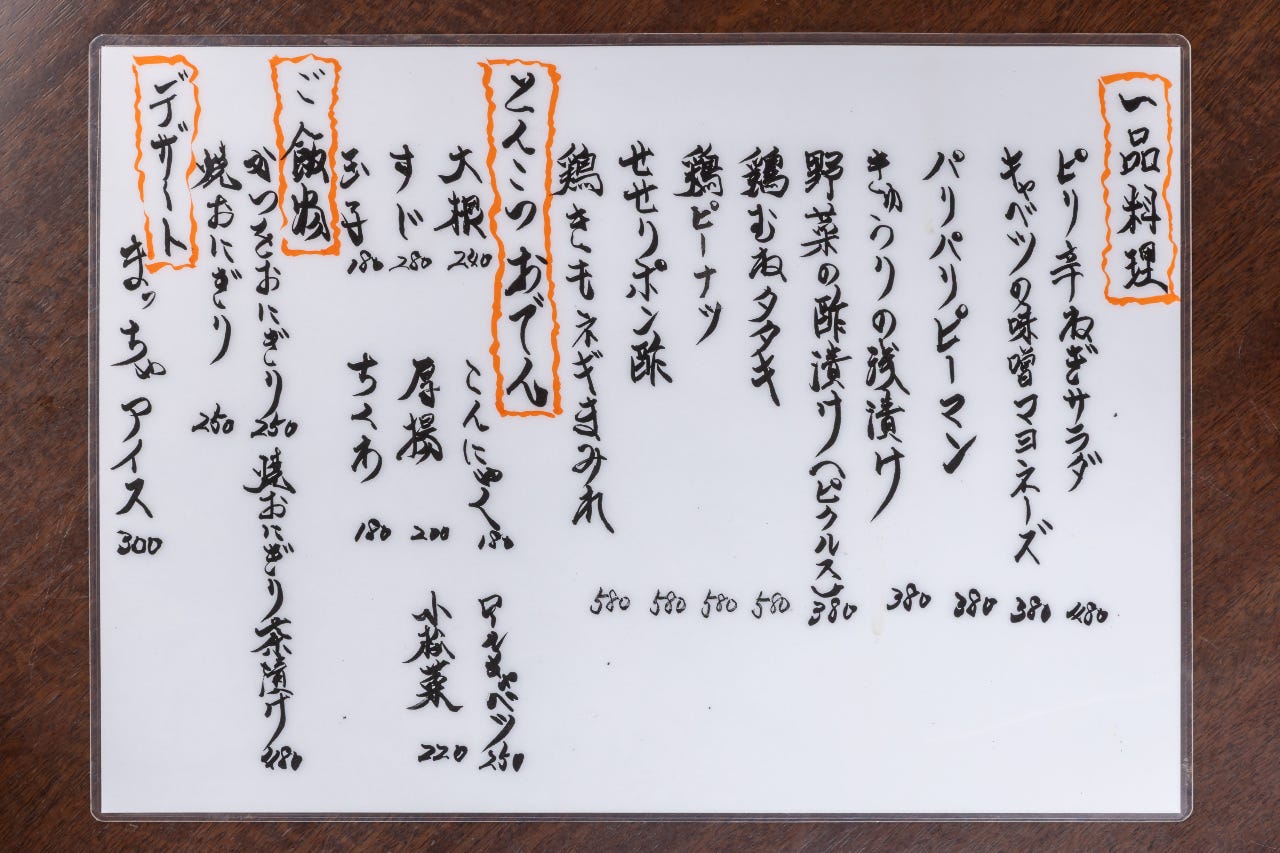 一品料理
ピリ辛ねぎサラダ 480
キャベツの味噌マヨネーズ 380
パリパリピーマン 380
きゅうりの浅漬け 380
野菜の酢漬け(ピクルス) 380
鶏むねタタキ 580
鶏ピーナツ 580
せせりポン酢 580
鶏きもネギまみれ 580
とんこつおでん
大根 240 こんにゃく 180 ロールキャベツ 250
すじ 280 厚揚 200 小松菜 220
玉子 180 ちくわ 180
ご飯物
かつをおにぎり 250 焼おにぎり茶漬け 480
焼おにぎり 250
デザート
まっちゃアイス 300